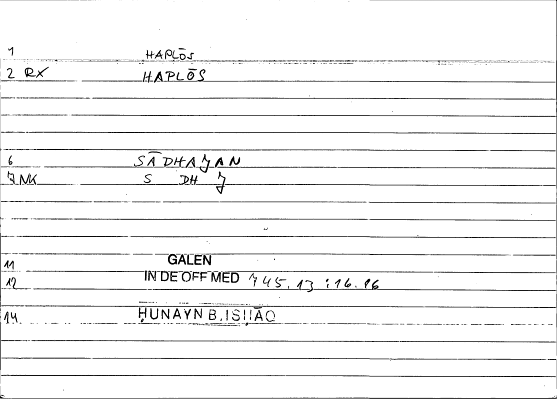 1 HAPLŌS
2 RX HAPLŌS
6 SĀDHAǦAN
7 NK S DH Ǧ
11 GALEN
12 IN DE OFF MED 745.13 : 16.16
14 ḤUNAYN B. ISḤĀQ